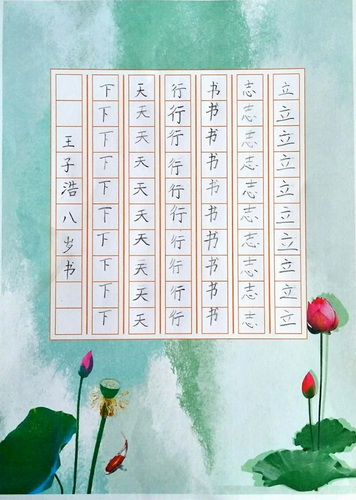 立立立立立立立立立立
志志志志志志志志志志
书书书书书书书书书书
行行行行行行行行行行
天天天天天天天天天天
下下下下下下下下下下
王子浩八岁书